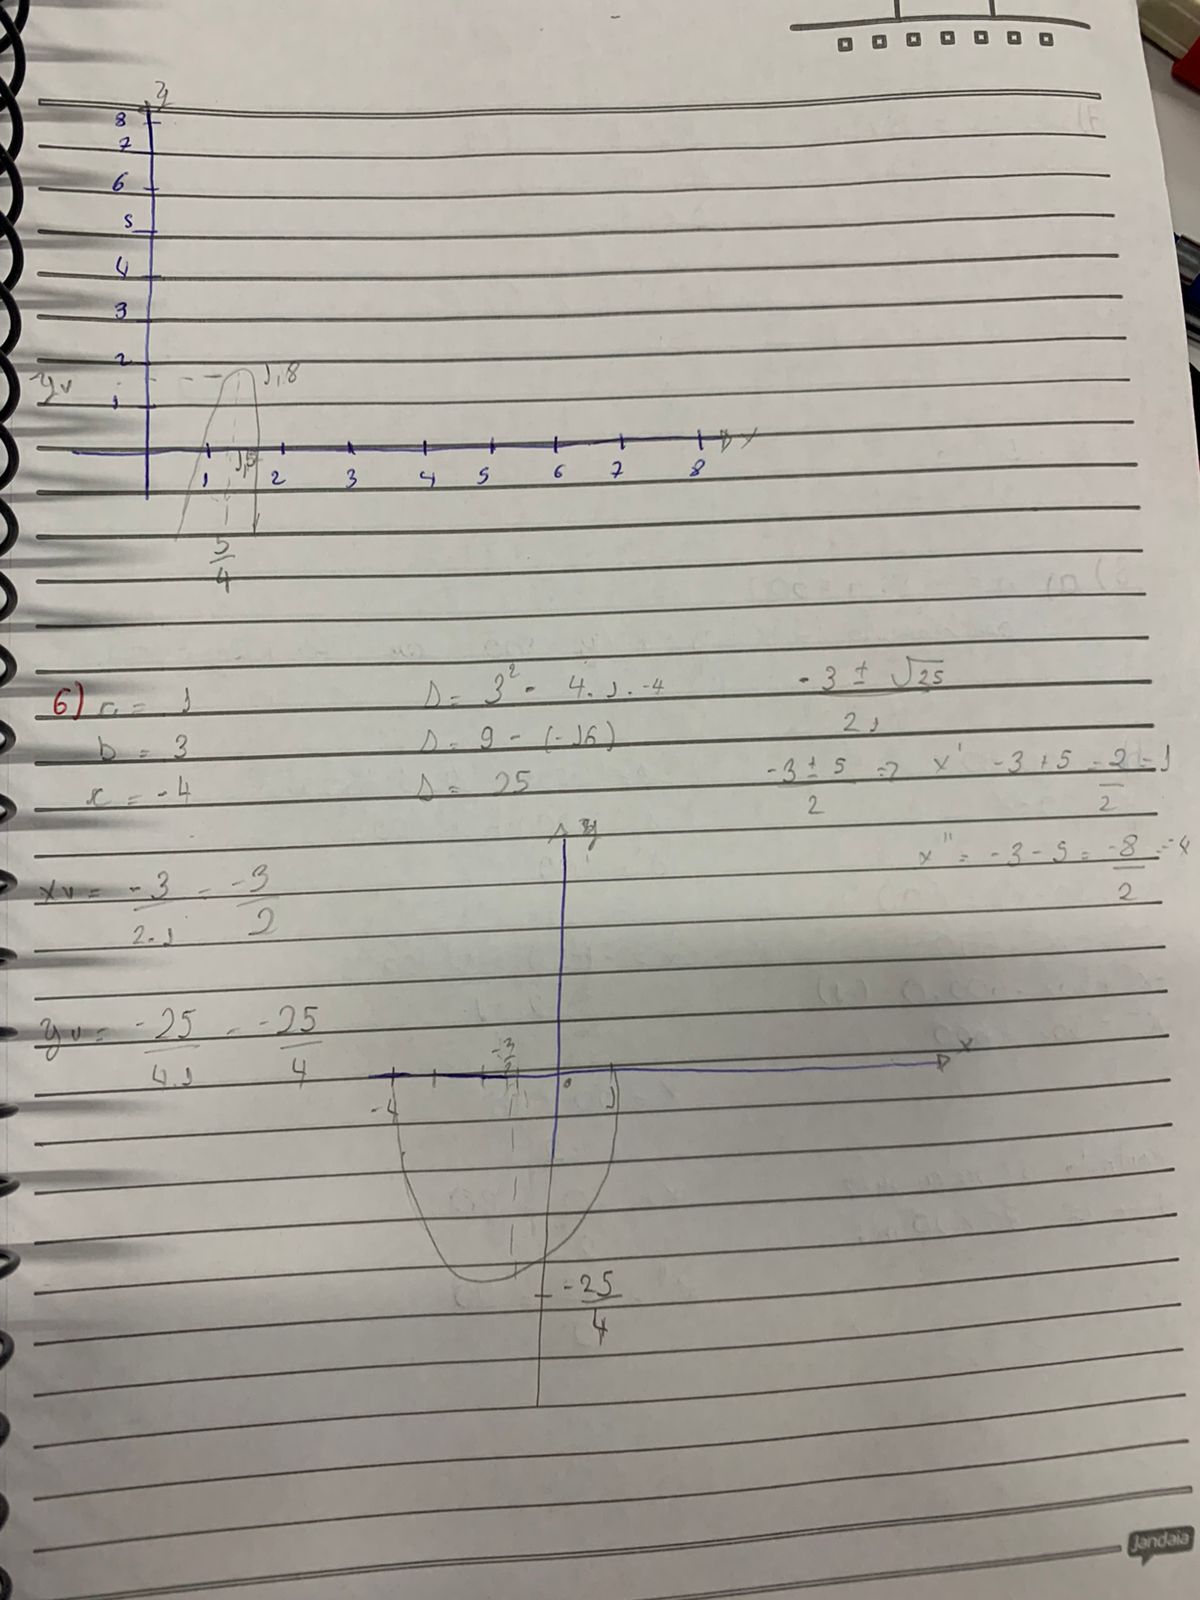 y
8
7
6
5
4
3
2
yv 1,8
1
x
1 1,5 2 3 4 5 6 7 8
5/4
6) a = 1
b = 3
x = -4
Δ = 3² - 4.1.-4
Δ = 9 - (-16)
Δ = 25
-3 ± √25
2.1
-3 ± 5 / 2 => x' -3+5 = 2/2 = 1
x'' = -3-5 = -8/2 = -4
xv = -3/2.1 = -3/2
yv = -25/4.1 = -25/4
y
x
-3/2
-4 0 1
-25/4
Jandaia